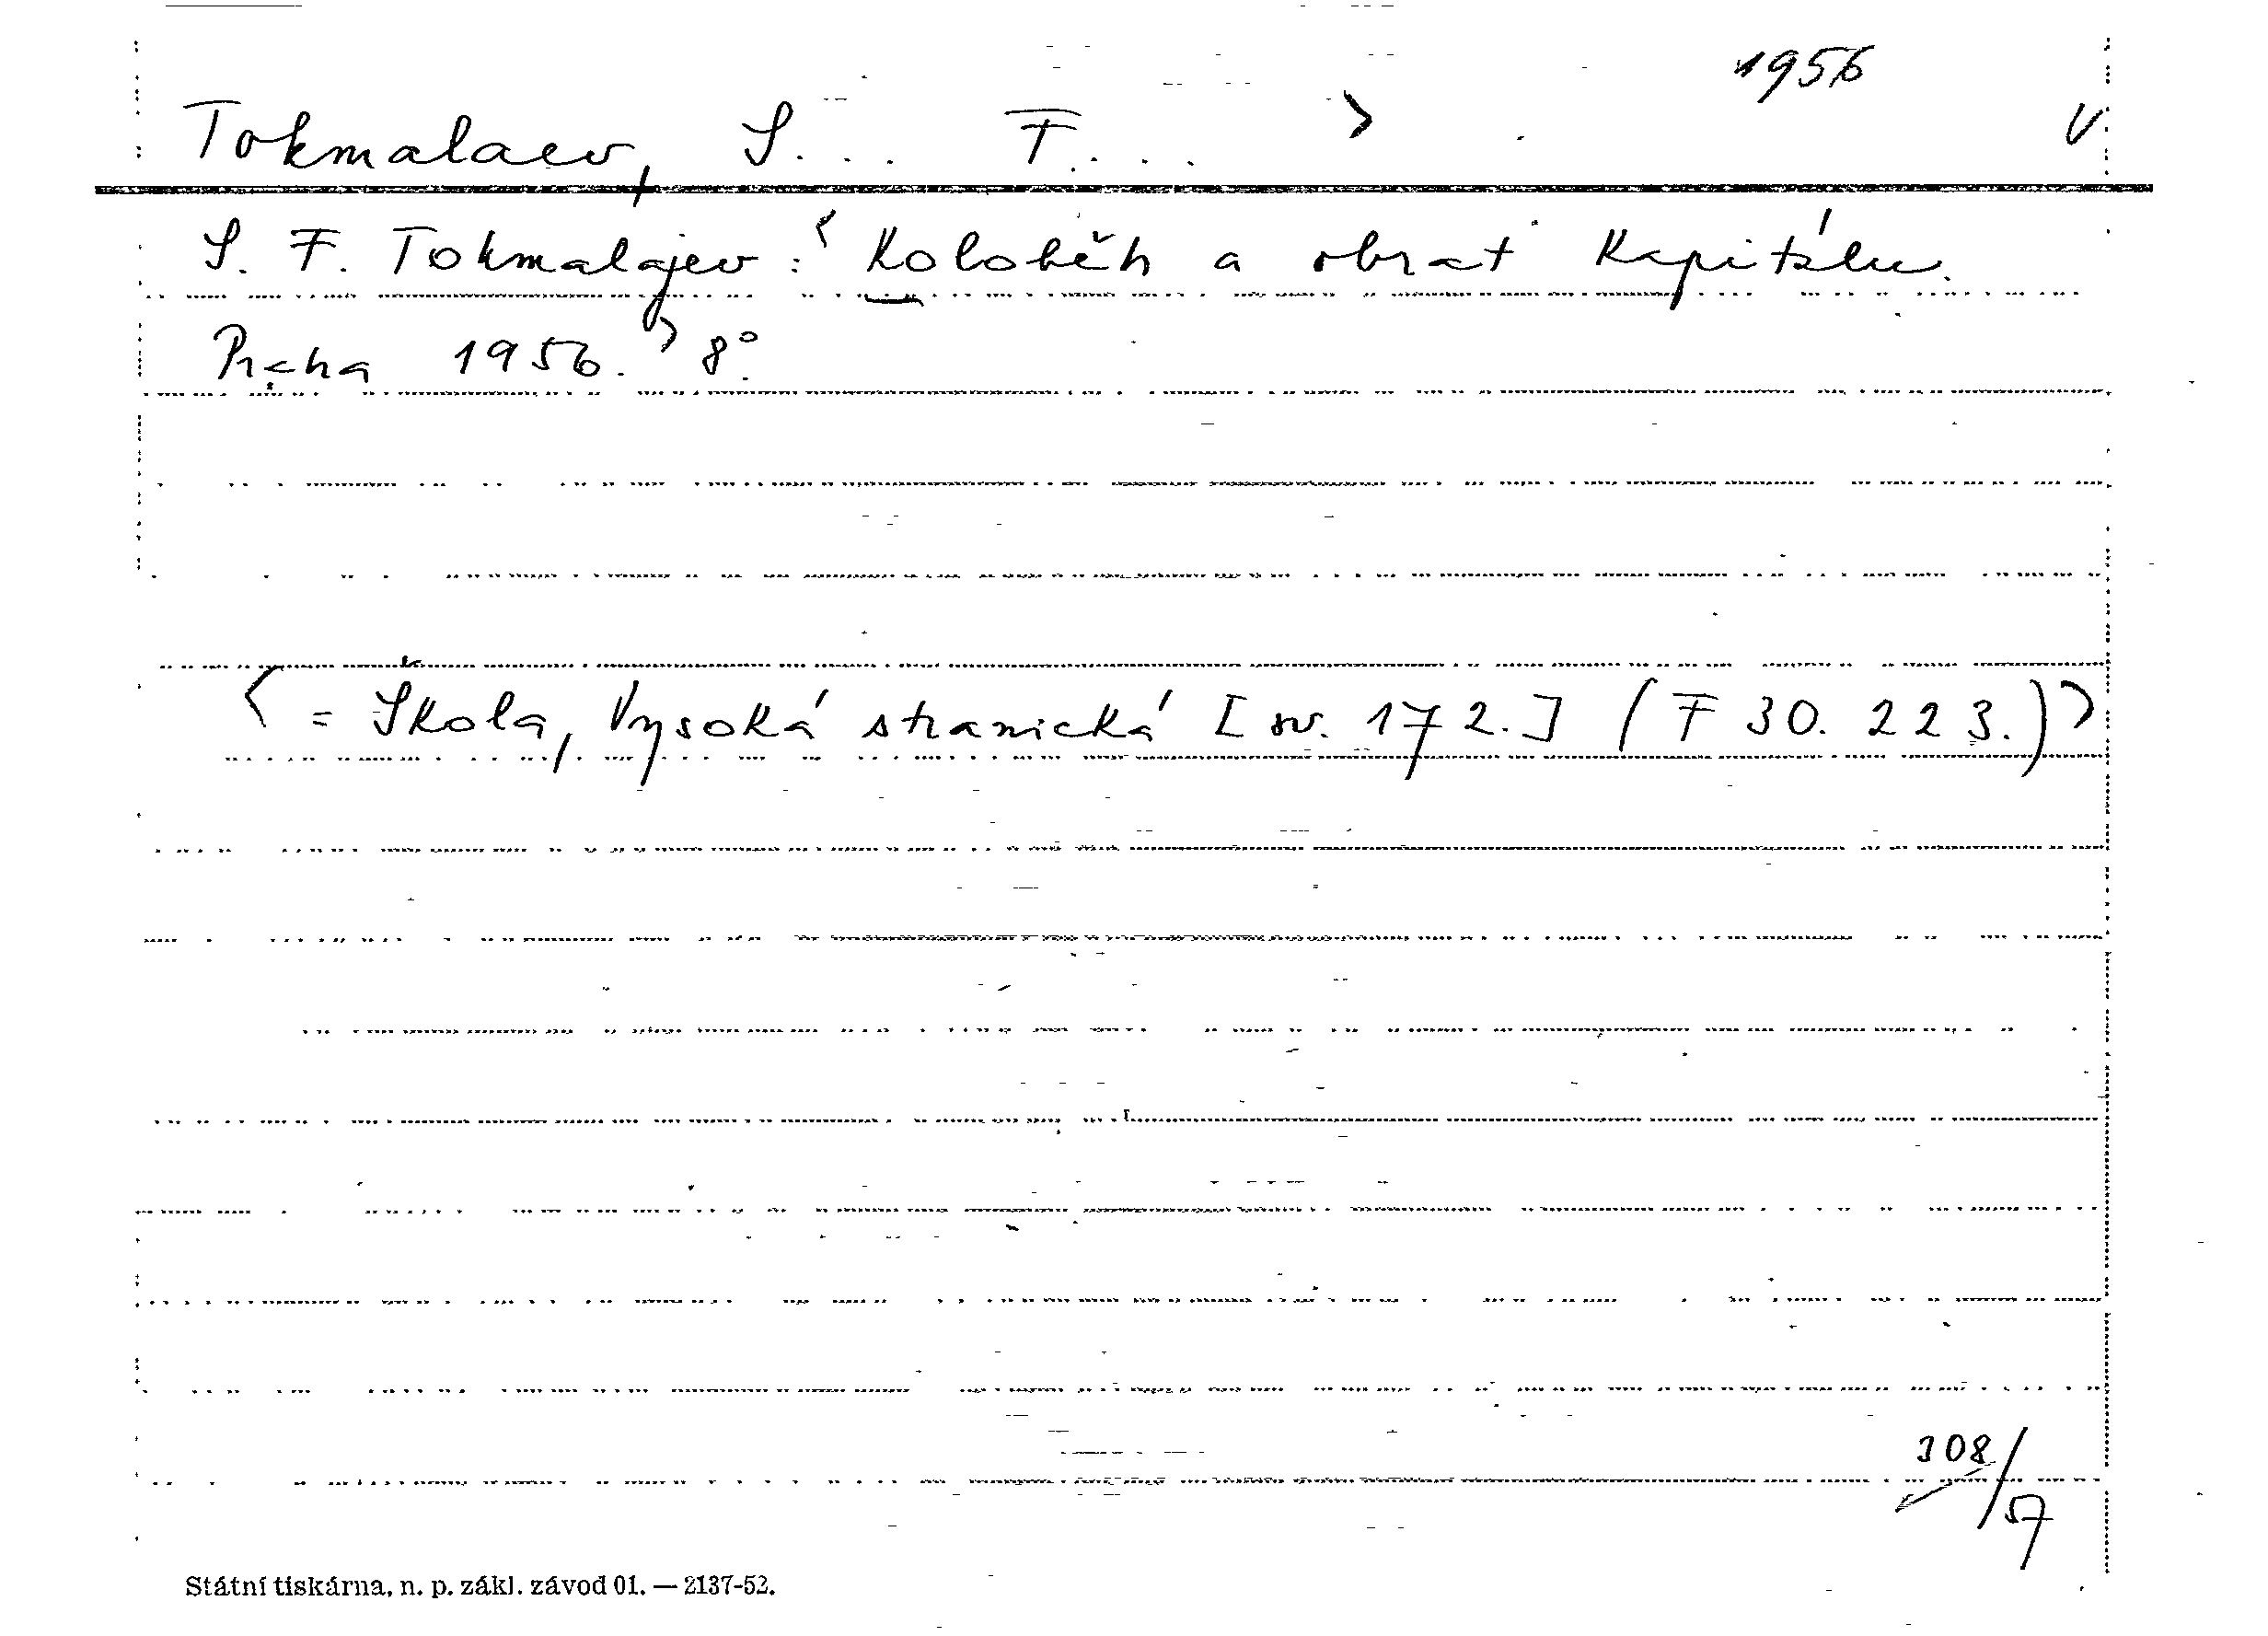 1956
Tokmalaev, S... F... > V.
S. F. Tokmalajev: < Koloběh a obrat kapitálu.
Praha 1956. > 8°.
< = Škola, Vysoká stranická [sv. 172.] (F 30. 223.) >
308/57
Státní tiskárna, n. p. zákl. závod 01. — 2137-52.